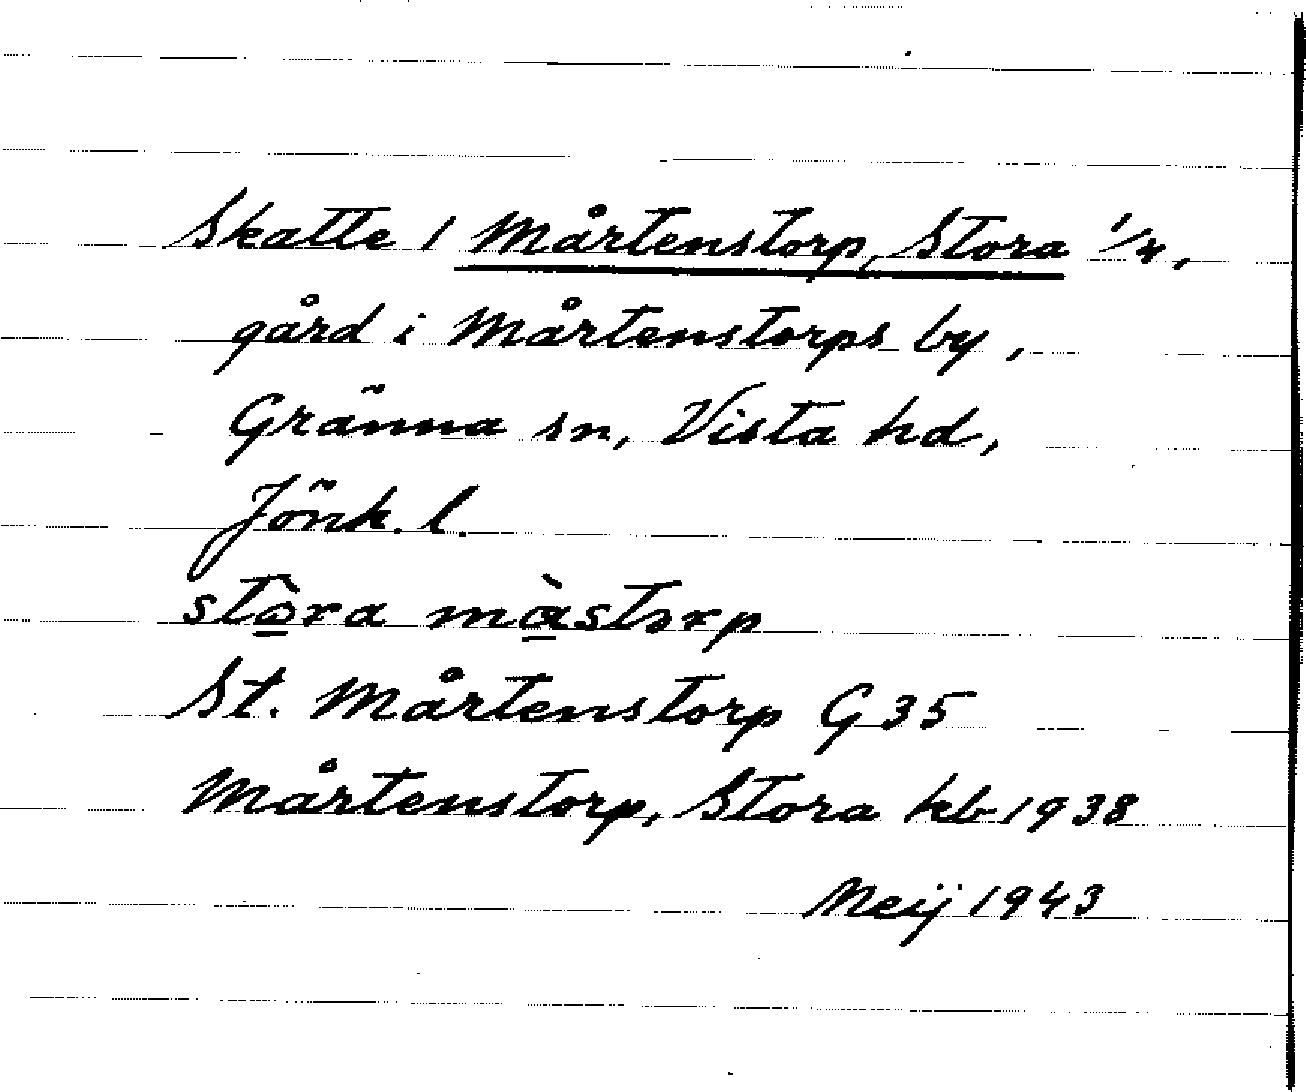 Skatte 1 Mårtenstorp, Stora 1/4,
gård i Mårtenstorps by,
Gränna sn, Vista hd,
Jönk. l.
stò̲ra mà̲storp
St. Mårtenstorp G 35
Mårtenstorp, Stora kb 1938
Meij 1943